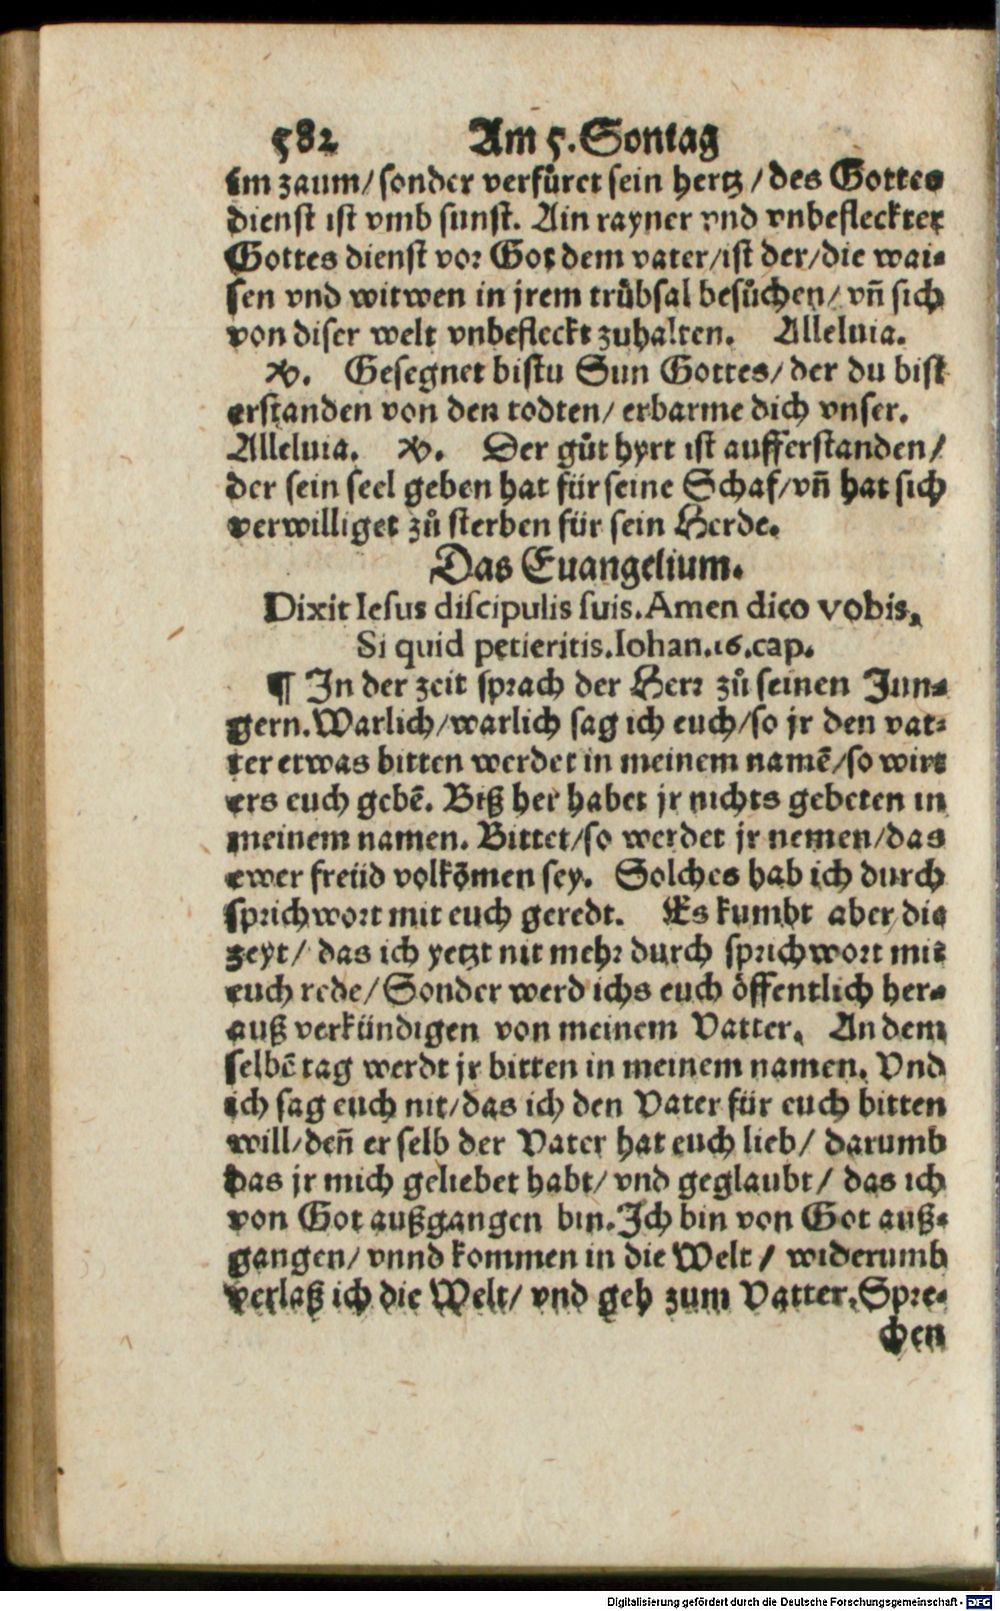 582 Am 5. Sontag
im zaum/ sonder verfüret sein hertz / des Gottes
dienst ist vmb sunst. Ain rayner vnd vnbefleckter
Gottes dienst vor Got dem vater/ist der/die wai-
sen vnd witwen in jrem trübsal besůchen/ vñ sich
von diser welt vnbefleckt zuhalten. Alleluia.
℣. Gesegnet bistu Sun Gottes/ der du bist
erstanden von den todten/ erbarme dich vnser.
Alleluia. ℣. Der gůt hyrt ist aufferstanden/
der sein seel geben hat für seine Schaf/vñ hat sich
verwilliget zů sterben für sein Herde.
Das Euangelium.
Dixit Iesus discipulis suis. Amen dico vobis,
Si quid petieritis. Iohan.16.cap.
¶ In der zeit sprach der Herr zů seinen Jun-
gern. Warlich/warlich sag ich euch/so jr den vat-
ter etwas bitten werdet in meinem namē/so wirt
ers euch gebē. Biß her habet jr nichts gebeten in
meinem namen. Bittet/so werdet jr nemen/das
ewer freüd volkōmen sey. Solches hab ich durch
sprichwort mit euch geredt. Es kumbt aber die
zeyt/ das ich yetzt nit mehr durch sprichwort mit
euch rede/ Sonder werd ichs euch öffentlich her-
auß verkündigen von meinem Vatter. An dem
selbē tag werdt jr bitten in meinem namen. Vnd
ich sag euch nit/das ich den Vater für euch bitten
will/deñ er selb der Vater hat euch lieb/ darumb
das jr mich geliebet habt/ vnd geglaubt/ das ich
von Got außgangen bin. Ich bin von Got auß-
gangen/ vnnd kommen in die Welt / widerumb
verlaß ich die Welt/ vnd geh zum Vatter. Spre-
chen
Digitalisierung gefördert durch die Deutsche Forschungsgemeinschaft - DFG